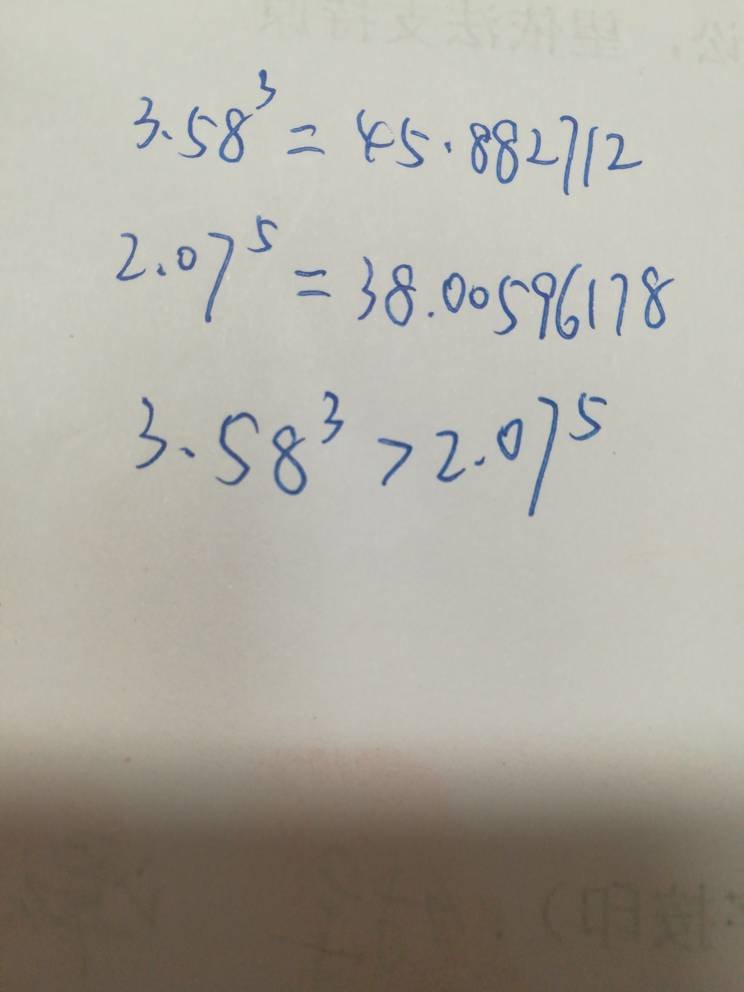 3.58³ = 45.882712
2.07⁵ = 38.00596178
3.58³ > 2.07⁵